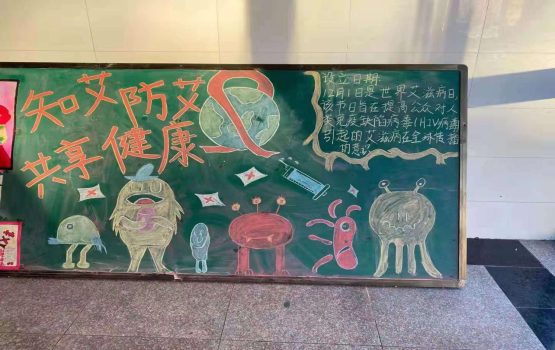 知艾防艾
共享健康
设立日期:
12月1日是世界艾滋病日,
该节日旨在提高公众对人
类免疫缺陷病毒(HIV)病毒
引起的艾滋病在全球传播
的意识